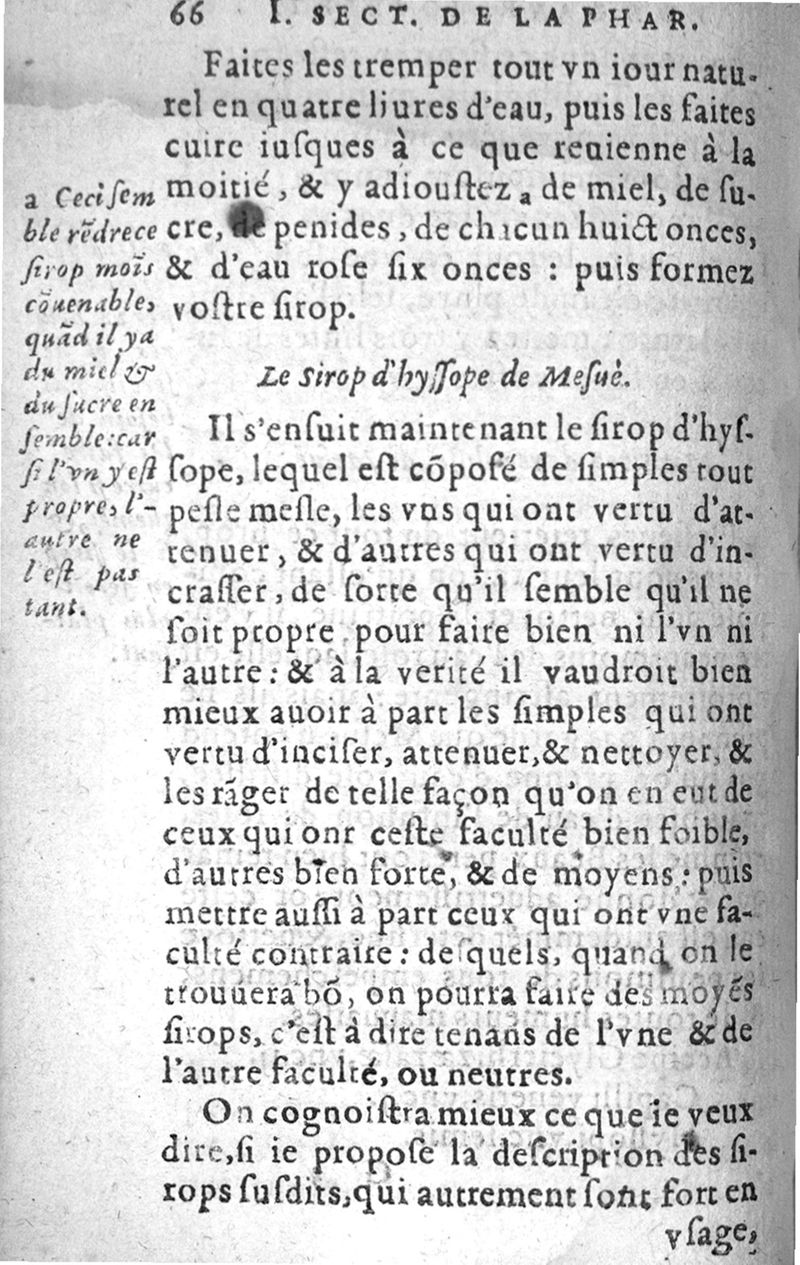 66 I. SECT. DE LA PHAR.
Faites les tremper tout vn iour natu-
rel en quatre liures d'eau, puis les faites
cuire iuſques à ce que reuienne à la
moitié, & y adiouſtez a de miel, de ſu-
cre, de penides, de chacun huict onces,
& d'eau roſe ſix onces : puis formez
voſtre ſirop.
a Ceci ſem
ble rẽdre ce
ſirop moĩs
cõuenable,
quãd il y a
du miel &
du ſucre en
ſemble: car
ſi l'vn y eſt
propre, l'-
autre ne
l'eſt pas
tant.
Le Sirop d'hyſſope de Meſuè.
Il s'enſuit maintenant le ſirop d'hyſ-
ſope, lequel eſt cõpoſé de ſimples tout
peſle meſle, les vns qui ont vertu d'at-
tenuer, & d'autres qui ont vertu d'in-
craſſer, de ſorte qu'il ſemble qu'il ne
ſoit propre pour faire bien ni l'vn ni
l'autre : & à la verité il vaudroit bien
mieux auoir à part les ſimples qui ont
vertu d'inciſer, attenuer, & nettoyer, &
les rãger de telle façon qu'on en eut de
ceux qui ont ceſte faculté bien foible,
d'autres bien forte, & de moyens : puis
mettre auſſi à part ceux qui ont vne fa-
culté contraire : deſquels, quand on le
trouuera bõ, on pourra faire des moyẽs
ſirops, c'eſt à dire tenans de l'vne & de
l'autre faculté, ou neutres.
On cognoiſtra mieux ce que ie veux
dire, ſi ie propoſe la deſcription des ſi-
rops ſuſdits, qui autrement ſont fort en
vſage,